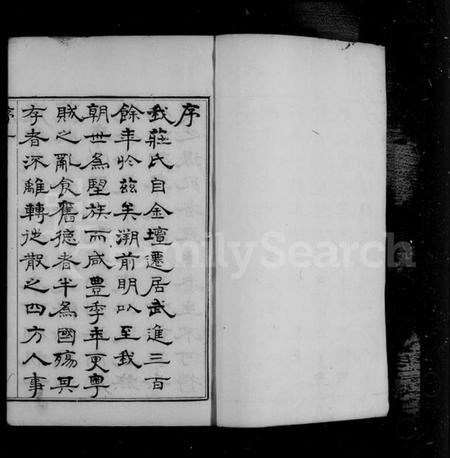 序
我莊氏自金壇遷居武進三百
餘年於茲矣溯前明以至我
朝世為望族而咸豐季年更粵
賊之亂食舊德者半為國殤其
存者流離轉徙散之四方人事
序
FamilySearch